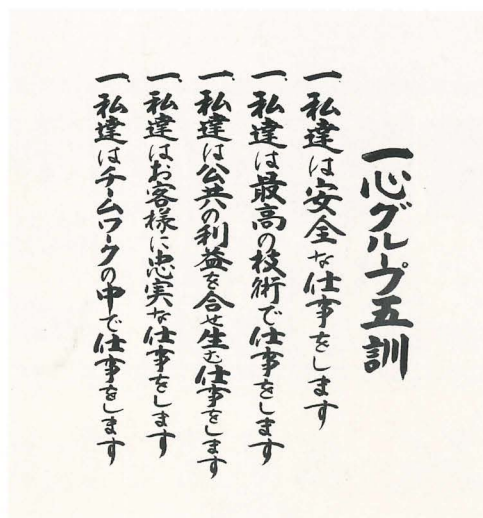 一心グループ五訓
一、私達は安全な仕事をします
一、私達は最高の技術で仕事をします
一、私達は公共の利益を合せ生む仕事をします
一、私達はお客様に忠実な仕事をします
一、私達はチームワークの中で仕事をします